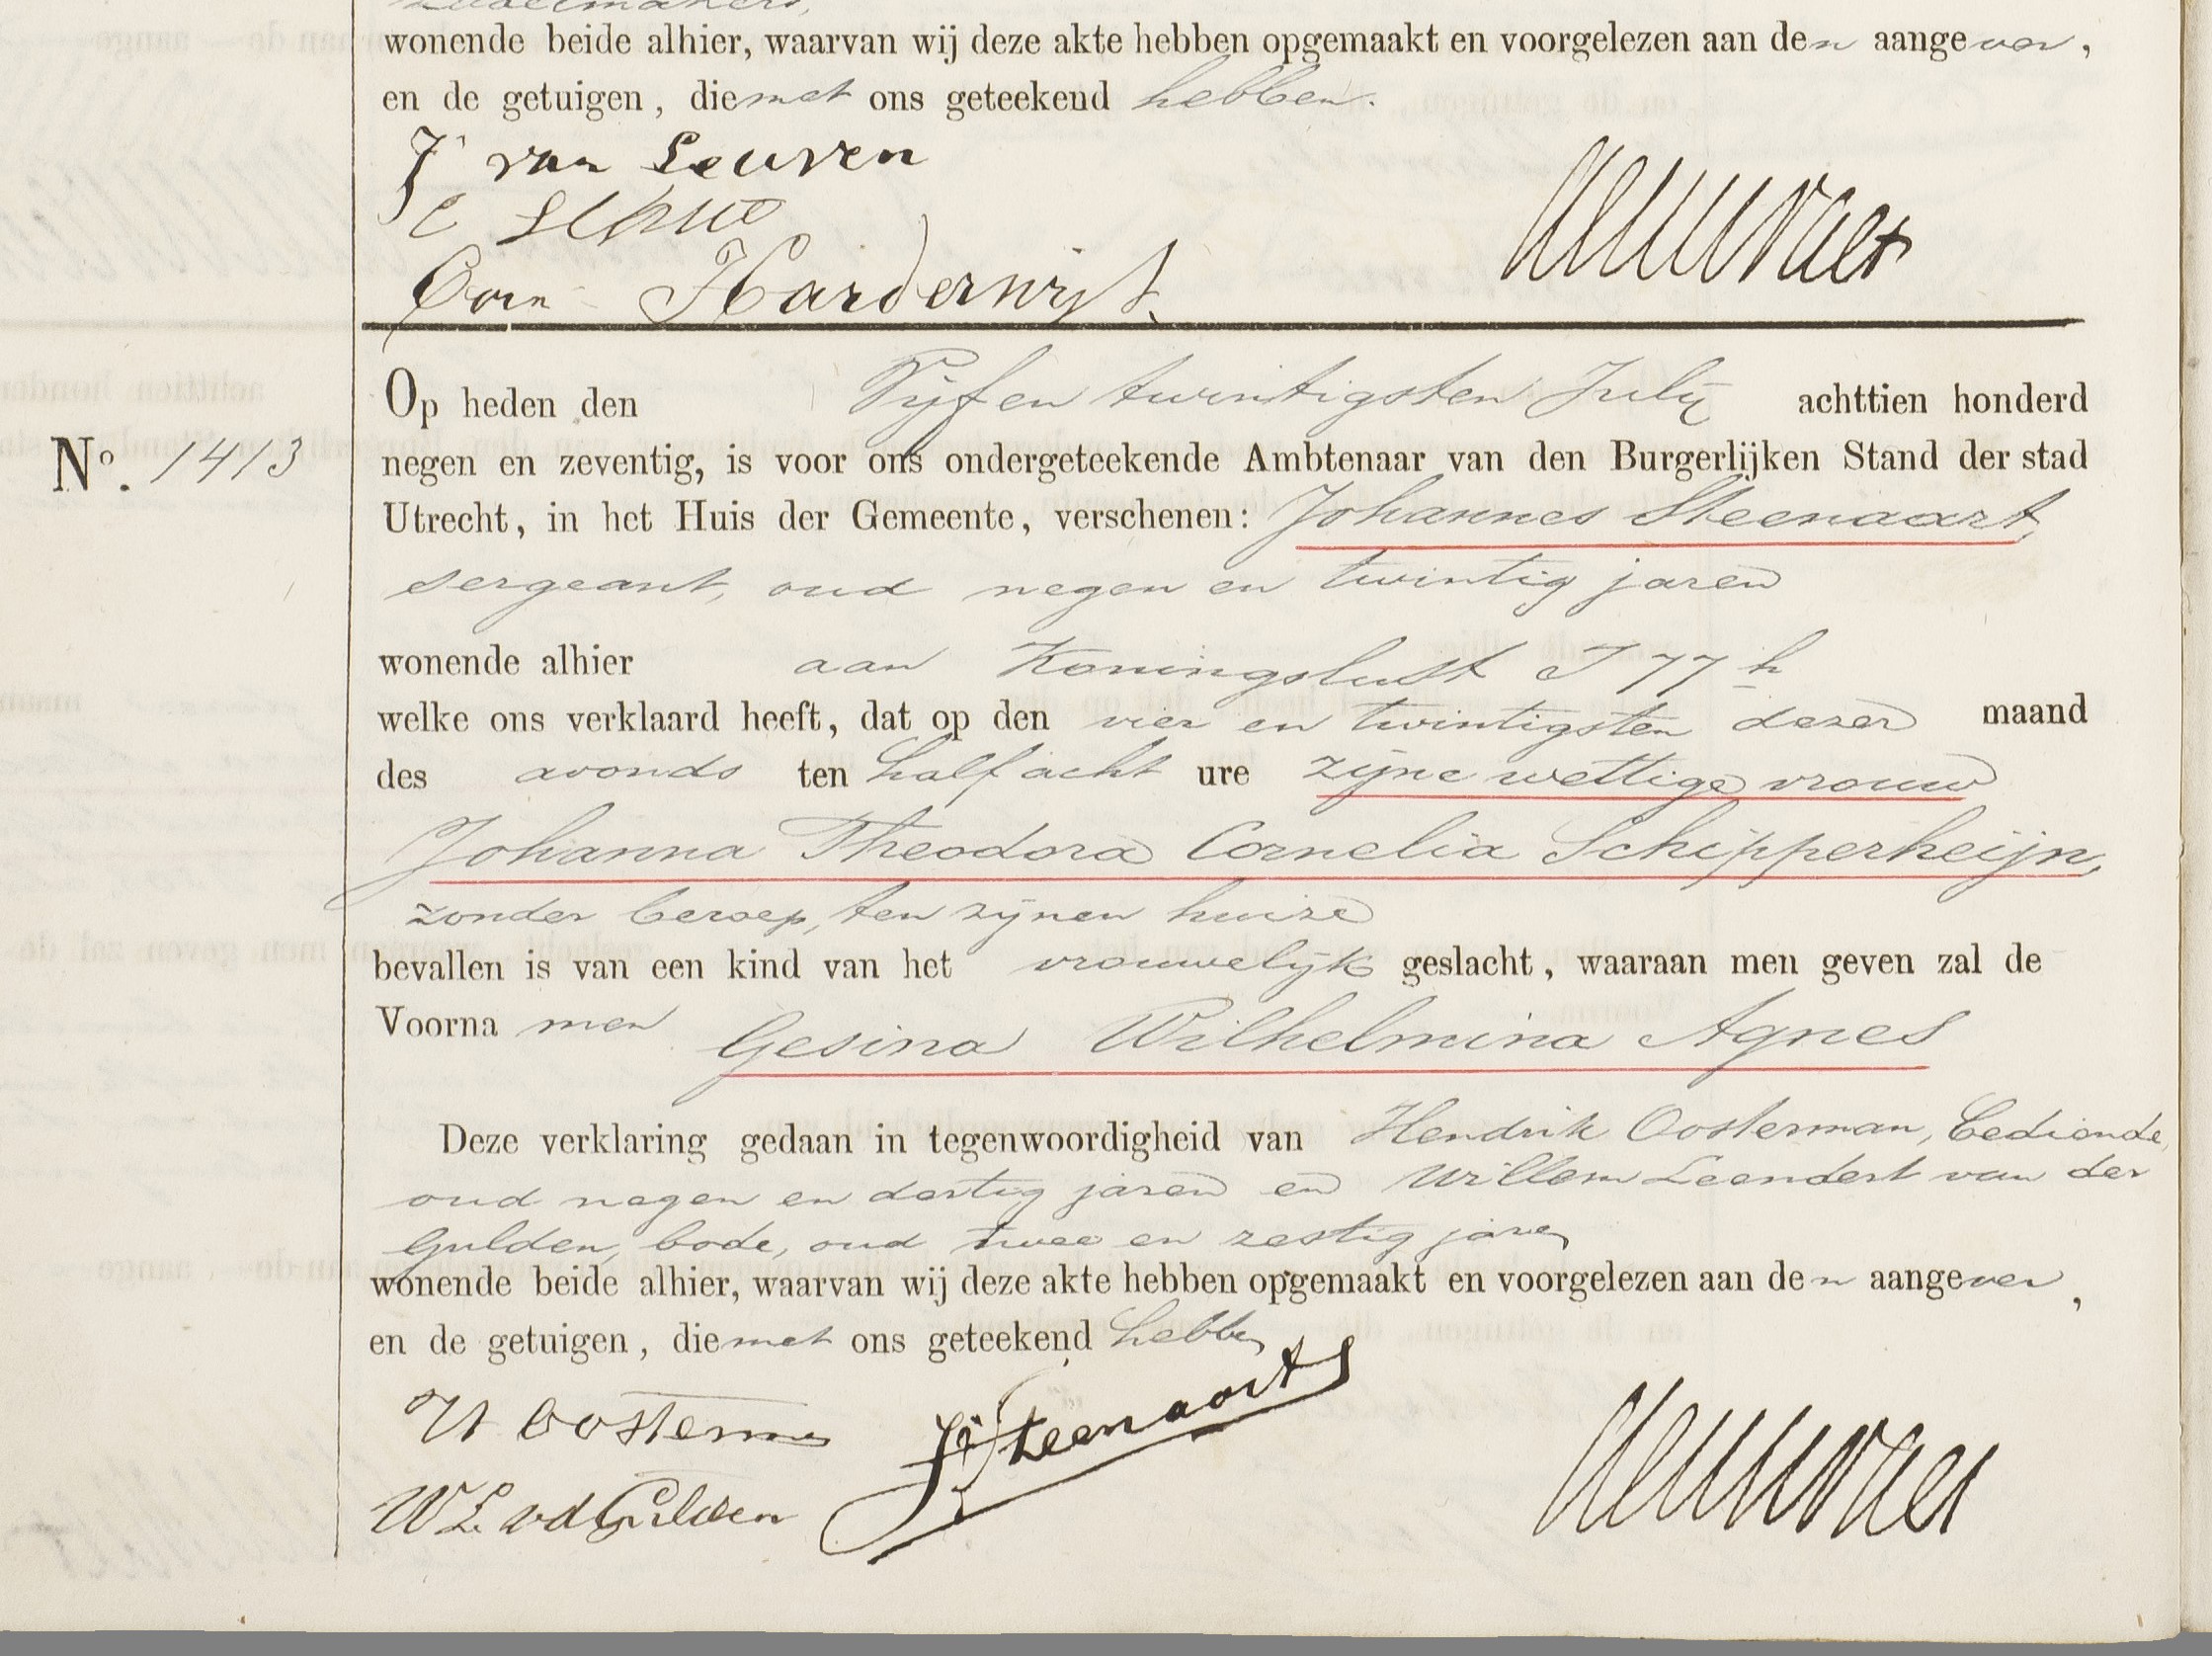 wonende beide alhier, waarvan wij deze akte hebben opgemaakt en voorgelezen aan den aangever,
en de getuigen, die met ons geteekend hebben.
J van Leuven
Corn Harderwijk
Op heden den Vijf en twintigsten July achttien honderd
No. 1413
negen en zeventig, is voor ons ondergeteekende Ambtenaar van den Burgerlijken Stand der stad
Utrecht, in het Huis der Gemeente, verschenen: Johannes Steenaart,
sergeant, oud negen en twintig jaren
wonende alhier aan Koningslust I 77 h
welke ons verklaard heeft, dat op den vier en twintigsten dezer maand
des avonds ten half acht ure zijne wettige vrouw
Johanna Theodora Cornelia Schipperheijn,
zonder beroep, ten zijnen huize
bevallen is van een kind van het vrouwelijk geslacht, waaraan men geven zal de
Voornamen Gesina Wilhelmina Agnes
Deze verklaring gedaan in tegenwoordigheid van Hendrik Oosterman, bediende,
oud negen en dertig jaren en Willem Leendert van der
Gulden, bode, oud twee en zestig jaren
wonende beide alhier, waarvan wij deze akte hebben opgemaakt en voorgelezen aan den aangever,
en de getuigen, die met ons geteekend hebben
H Oosterman
J Steenaart
W L vd Gulden